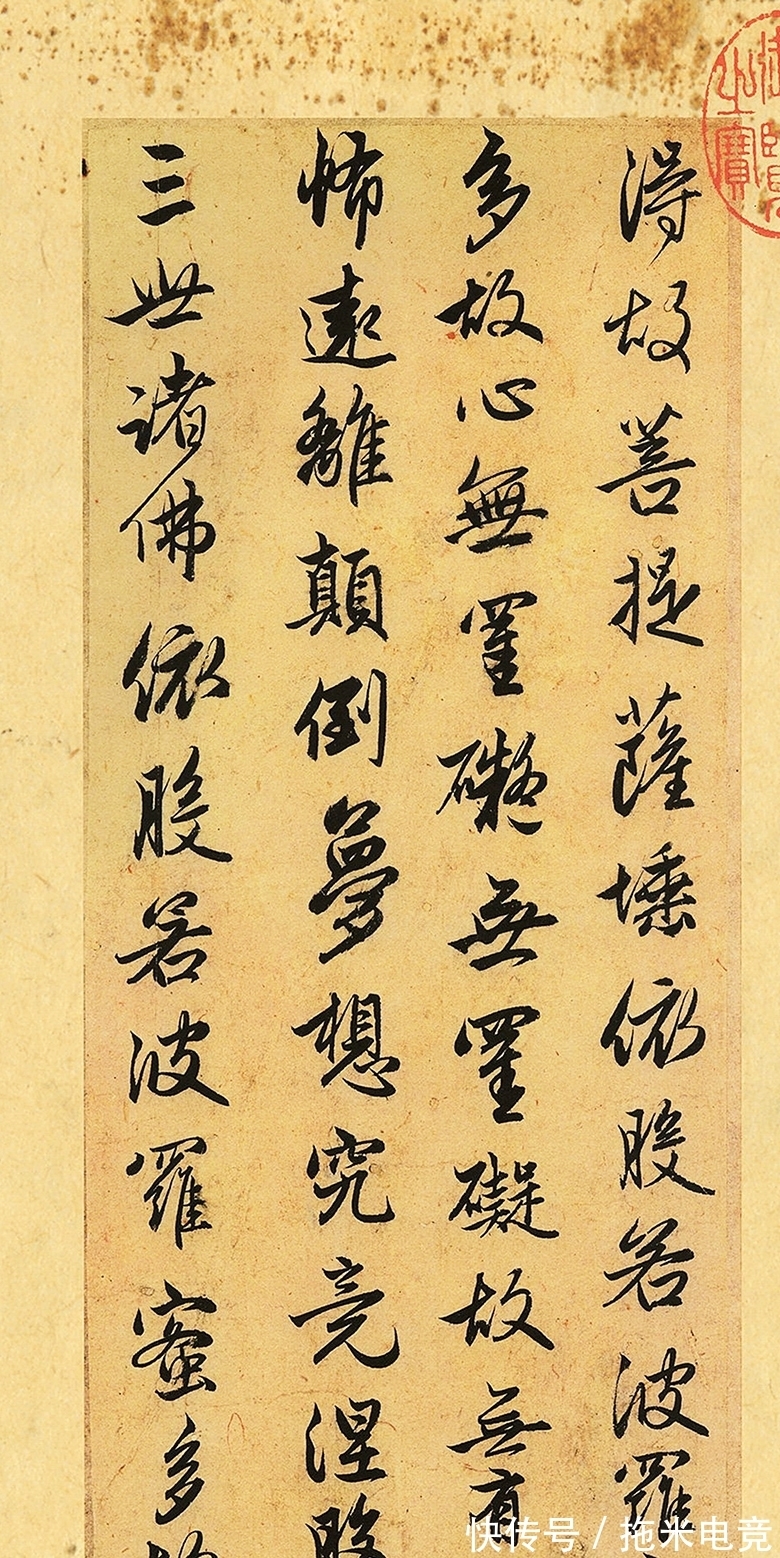 得故菩提薩埵依般若波羅
多故心無罣礙無罣礙故無有
怖遠離顛倒夢想究竟涅
三世諸佛依般若波羅蜜多
之寶
快传号 / 拖米电竞